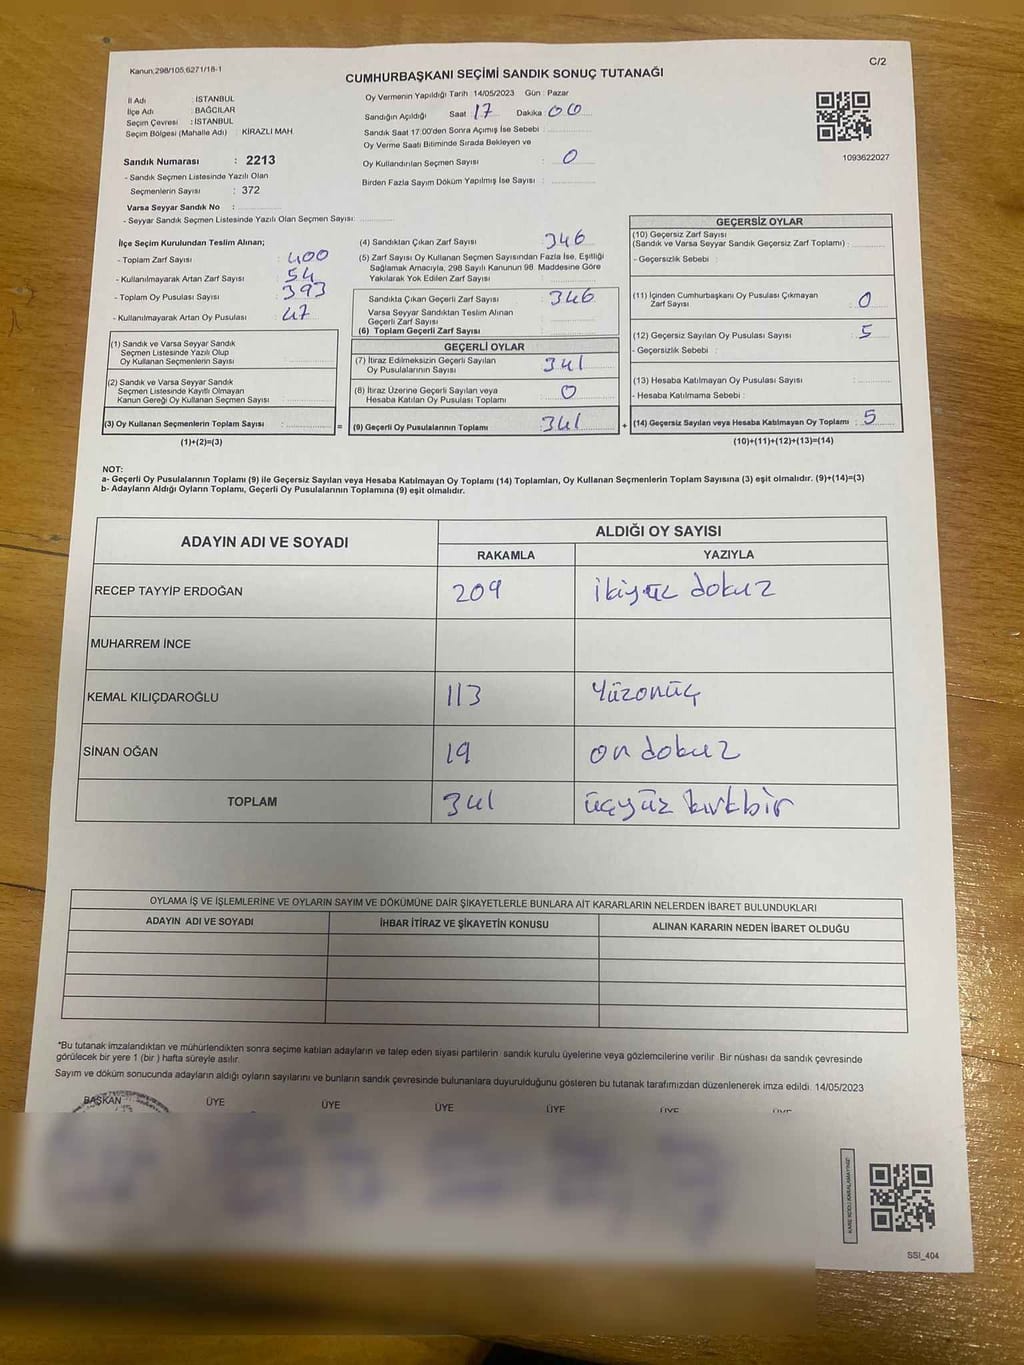 Kanun,298/105,6271/18-1
C/2
CUMHURBAŞKANI SEÇİMİ SANDIK SONUÇ TUTANAĞI
İl Adı : İSTANBUL
İlçe Adı : BAĞCILAR
Seçim Çevresi : İSTANBUL
Seçim Bölgesi (Mahalle Adı) : KİRAZLI MAH.
Sandık Numarası : 2213
- Sandık Seçmen Listesinde Yazılı Olan
Seçmenlerin Sayısı : 372
Varsa Seyyar Sandık No :
- Seyyar Sandık Seçmen Listesinde Yazılı Olan Seçmen Sayısı:
Oy Vermenin Yapıldığı Tarih : 14/05/2023 Gün : Pazar
Sandığın Açıldığı Saat : 17 Dakika : 00
Sandık Saat 17:00'den Sonra Açımış İse Sebebi :
Oy Verme Saati Bitiminde Sırada Bekleyen ve
Oy Kullandırılan Seçmen Sayısı : 0
Birden Fazla Sayım Döküm Yapılmış İse Sayısı :
1093622027
İlçe Seçim Kurulundan Teslim Alınan;
- Toplam Zarf Sayısı : 400
- Kullanılmayarak Artan Zarf Sayısı : 54
- Toplam Oy Pusulası Sayısı : 393
- Kullanılmayarak Artan Oy Pusulası : 47
(1) Sandık ve Varsa Seyyar Sandık
Seçmen Listesinde Yazılı Olup
Oy Kullanan Seçmenlerin Sayısı
(2) Sandık ve Varsa Seyyar Sandık
Seçmen Listesinde Kayıtlı Olmayan
Kanun Gereği Oy Kullanan Seçmen Sayısı :
(3) Oy Kullanan Seçmenlerin Toplam Sayısı :
(1)+(2)=(3)
(4) Sandıktan Çıkan Zarf Sayısı : 346
(5) Zarf Sayısı Oy Kullanan Seçmen Sayısından Fazla İse, Eşitliği
Sağlamak Amacıyla, 298 Sayılı Kanunun 98. Maddesine Göre
Yakılarak Yok Edilen Zarf Sayısı :
Sandıkta Çıkan Geçerli Zarf Sayısı : 346
Varsa Seyyar Sandıktan Teslim Alınan
Geçerli Zarf Sayısı :
(6) Toplam Geçerli Zarf Sayısı :
GEÇERLİ OYLAR
(7) İtiraz Edilmeksizin Geçerli Sayılan
Oy Pusulalarının Sayısı : 341
(8) İtiraz Üzerine Geçerli Sayılan veya
Hesaba Katılan Oy Pusulası Toplamı : 0
= (9) Geçerli Oy Pusulalarının Toplamı : 341
GEÇERSİZ OYLAR
(10) Geçersiz Zarf Sayısı
(Sandık ve Varsa Seyyar Sandık Geçersiz Zarf Toplamı) :
- Geçersizlik Sebebi :
(11) İçinden Cumhurbaşkanı Oy Pusulası Çıkmayan
Zarf Sayısı : 0
(12) Geçersiz Sayılan Oy Pusulası Sayısı : 5
- Geçersizlik Sebebi :
(13) Hesaba Katılmayan Oy Pusulası Sayısı :
- Hesaba Katılmama Sebebi :
+ (14) Geçersiz Sayılan veya Hesaba Katılmayan Oy Toplamı : 5
(10)+(11)+(12)+(13)=(14)
NOT:
a- Geçerli Oy Pusulalarının Toplamı (9) ile Geçersiz Sayılan veya Hesaba Katılmayan Oy Toplamı (14) Toplamları, Oy Kullanan Seçmenlerin Toplam Sayısına (3) eşit olmalıdır. (9)+(14)=(3)
b- Adayların Aldığı Oyların Toplamı, Geçerli Oy Pusulalarının Toplamına (9) eşit olmalıdır.
ADAYIN ADI VE SOYADI
ALDIĞI OY SAYISI
RAKAMLA YAZIYLA
RECEP TAYYİP ERDOĞAN 209 ikiyüz dokuz
MUHARREM İNCE
KEMAL KILIÇDAROĞLU 113 Yüzonüç
SİNAN OĞAN 19 on dokuz
TOPLAM 341 üçyüz kırkbir
OYLAMA İŞ VE İŞLEMLERİNE VE OYLARIN SAYIM VE DÖKÜMÜNE DAİR ŞİKAYETLERLE BUNLARA AİT KARARLARIN NELERDEN İBARET BULUNDUKLARI
ADAYIN ADI VE SOYADI İHBAR İTİRAZ VE ŞİKAYETİN KONUSU ALINAN KARARIN NEDEN İBARET OLDUĞU
*Bu tutanak imzalandıktan ve mühürlendikten sonra seçime katılan adayların ve talep eden siyasi partilerin sandık kurulu üyelerine veya gözlemcilerine verilir. Bir nüshası da sandık çevresinde
görülecek bir yere 1 (bir) hafta süreyle asılır.
Sayım ve döküm sonucunda adayların aldığı oyların sayılarını ve bunların sandık çevresinde bulunanlara duyurulduğunu gösteren bu tutanak tarafımızdan düzenlenerek imza edildi. 14/05/2023
BAŞKAN ÜYE ÜYE ÜYE ÜYE ÜYE ÜYE
KARE KODU KARALAMAYINIZ!
SSI_404